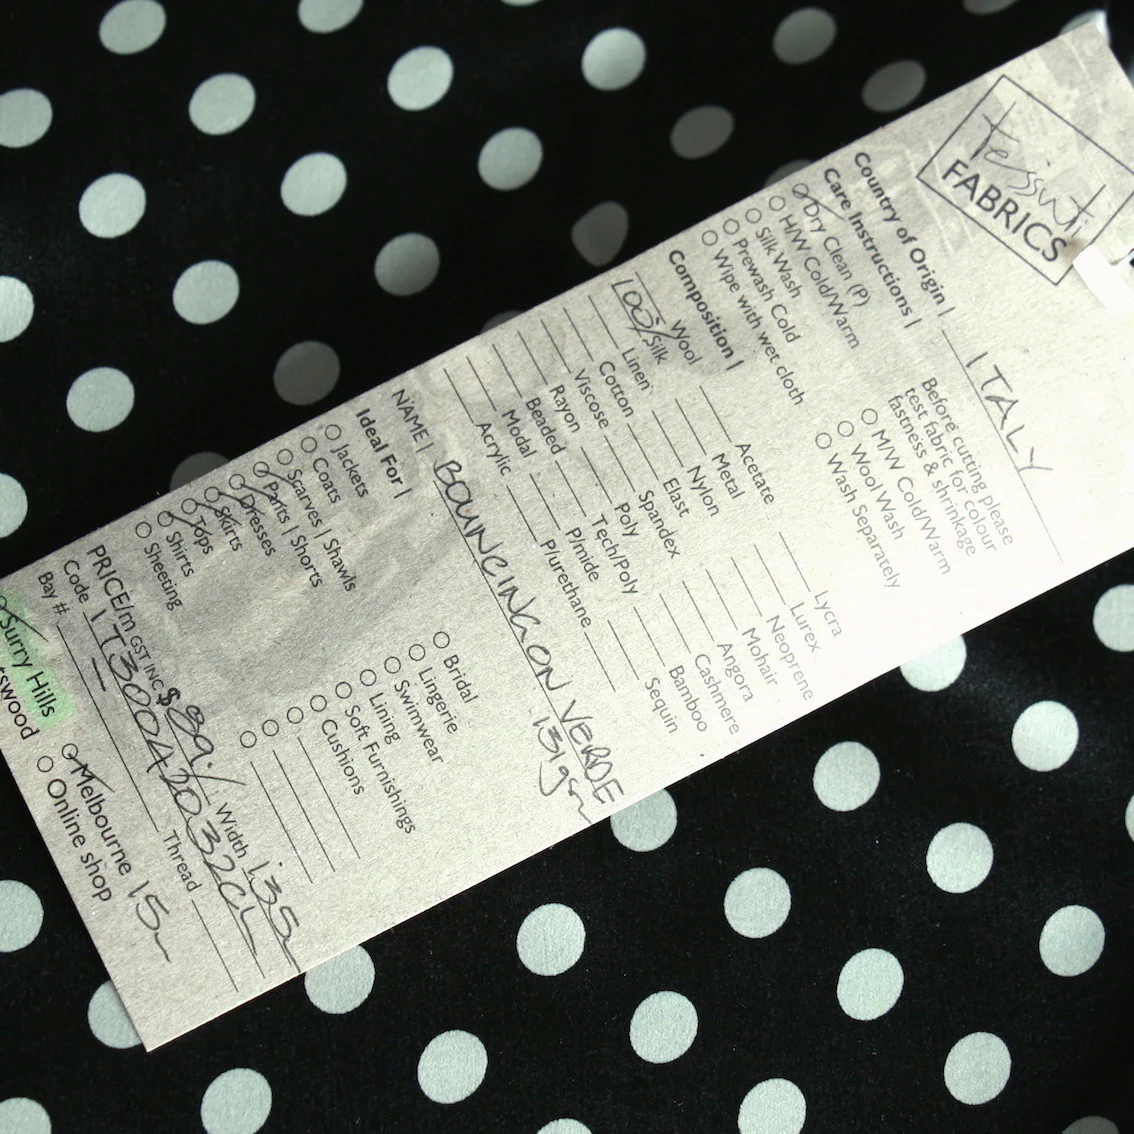 tessuti
FABRICS
Country of Origin | ITALY
Care Instructions |
Dry Clean (P)
H/W Cold/Warm
Silk Wash
Prewash Cold
Wipe with wet cloth
Before cutting please
test fabric for colour
fastness & shrinkage
M/W Cold/Warm
Wool Wash
Wash Separately
Composition |
Wool
100% Silk
Linen
Cotton
Viscose
Rayon
Beaded
Modal
Acrylic
Acetate
Metal
Nylon
Elast
Spandex
Poly
Tech/Poly
P/mide
P/urethane
Lycra
Lurex
Neoprene
Mohair
Angora
Cashmere
Bamboo
Sequin
NAME | BOUNCING ON VERDE
Ideal For |
Jackets
Coats
Scarves | Shawls
Pants | Shorts
Dresses
Skirts
Tops
Shirts
Sheeting
Bridal
Lingerie
Swimwear
Lining
Soft Furnishings
Cushions
PRICE/m GST INC $ 89.- Width 135
Code
Bay #: Thread
Surry Hills
Melbourne 15m
Online shop